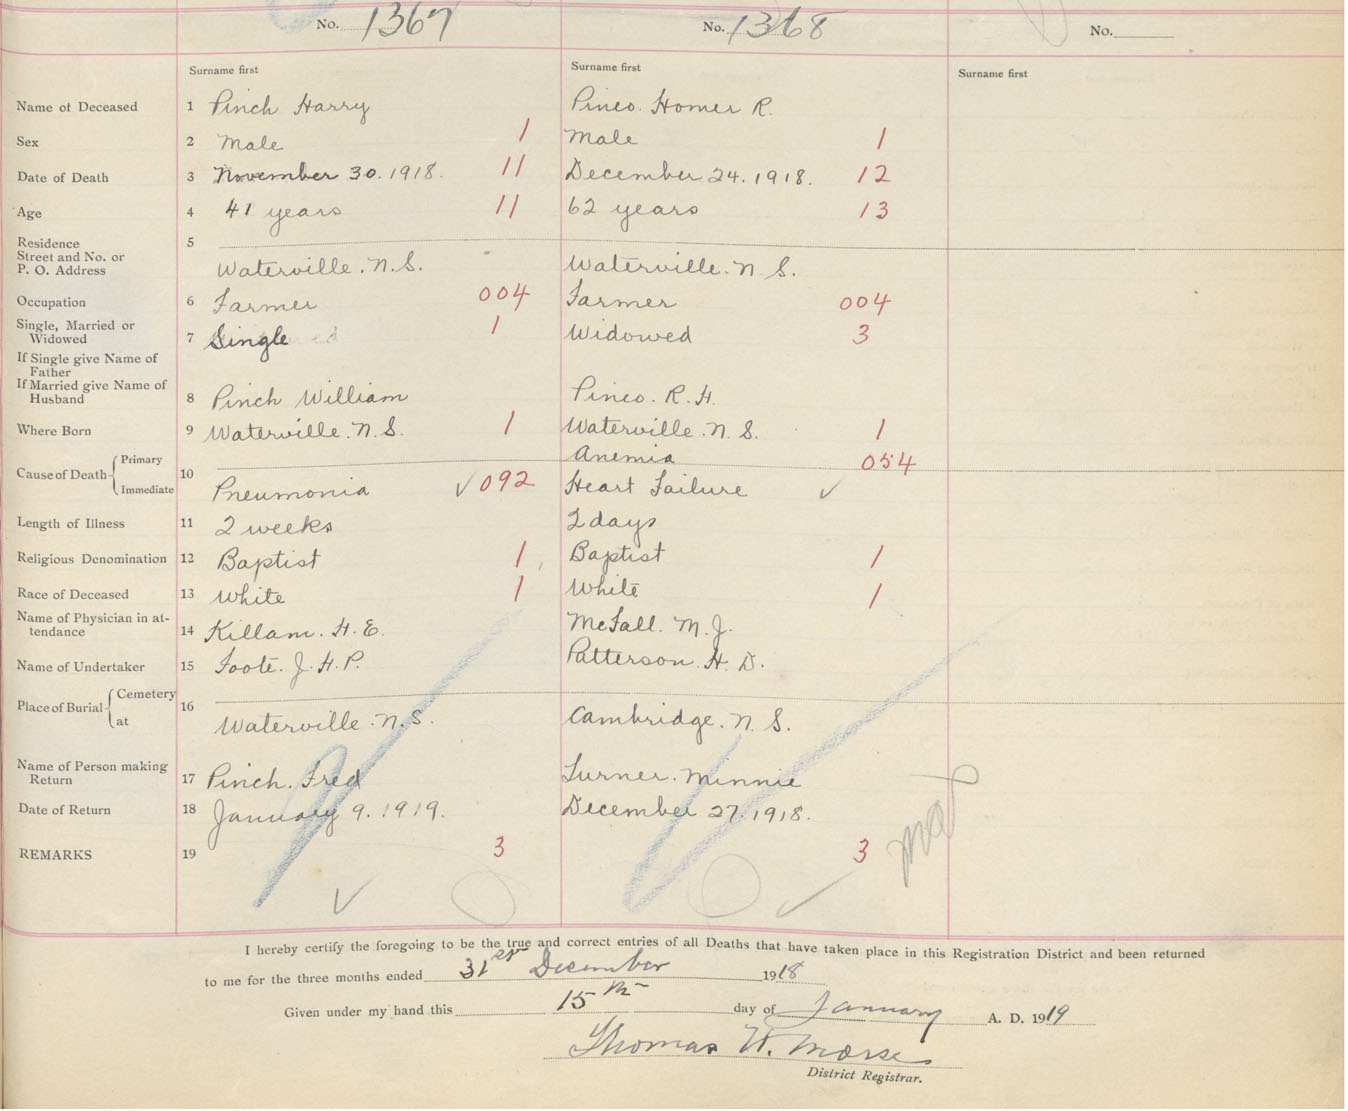 No. 1367 No. 1368 No.
Surname first Surname first Surname first
Name of Deceased 1 Pinch Harry Pineo. Homer R.
Sex 2 Male 1 Male 1
Date of Death 3 November 30. 1918. 11 December 24. 1918. 12
Age 4 41 years 11 62 years 13
Residence 5
Street and No. or
P. O. Address Waterville. N.S. Waterville. N. S.
Occupation 6 Farmer 004 Farmer 004
Single, Married or
Widowed 7 Single 1 Widowed 3
If Single give Name of
Father
If Married give Name of
Husband 8 Pinch William Pineo. R. H.
Where Born 9 Waterville. N. S. 1 Waterville. N. S. 1
Primary Anemia 054
Cause of Death 10
Immediate Pneumonia ✓ 092 Heart Failure ✓
Length of Illness 11 2 weeks 2 days
Religious Denomination 12 Baptist 1 Baptist 1
Race of Deceased 13 White 1 White 1
Name of Physician in at-
tendance 14 Killam. H. E. McFall. M. J.
Name of Undertaker 15 Foote. J. H. P. Patterson. H. D.
Cemetery
Place of Burial 16
at Waterville. N. S. Cambridge. N. S.
Name of Person making
Return 17 Pinch. Fred Turner. Minnie
Date of Return 18 January 9. 1919. December 27. 1918.
REMARKS 19 3 3
I hereby certify the foregoing to be the true and correct entries of all Deaths that have taken place in this Registration District and been returned
to me for the three months ended 31st December 1918
Given under my hand this 15th day of January A. D. 1919
Thomas W. Morse
District Registrar.